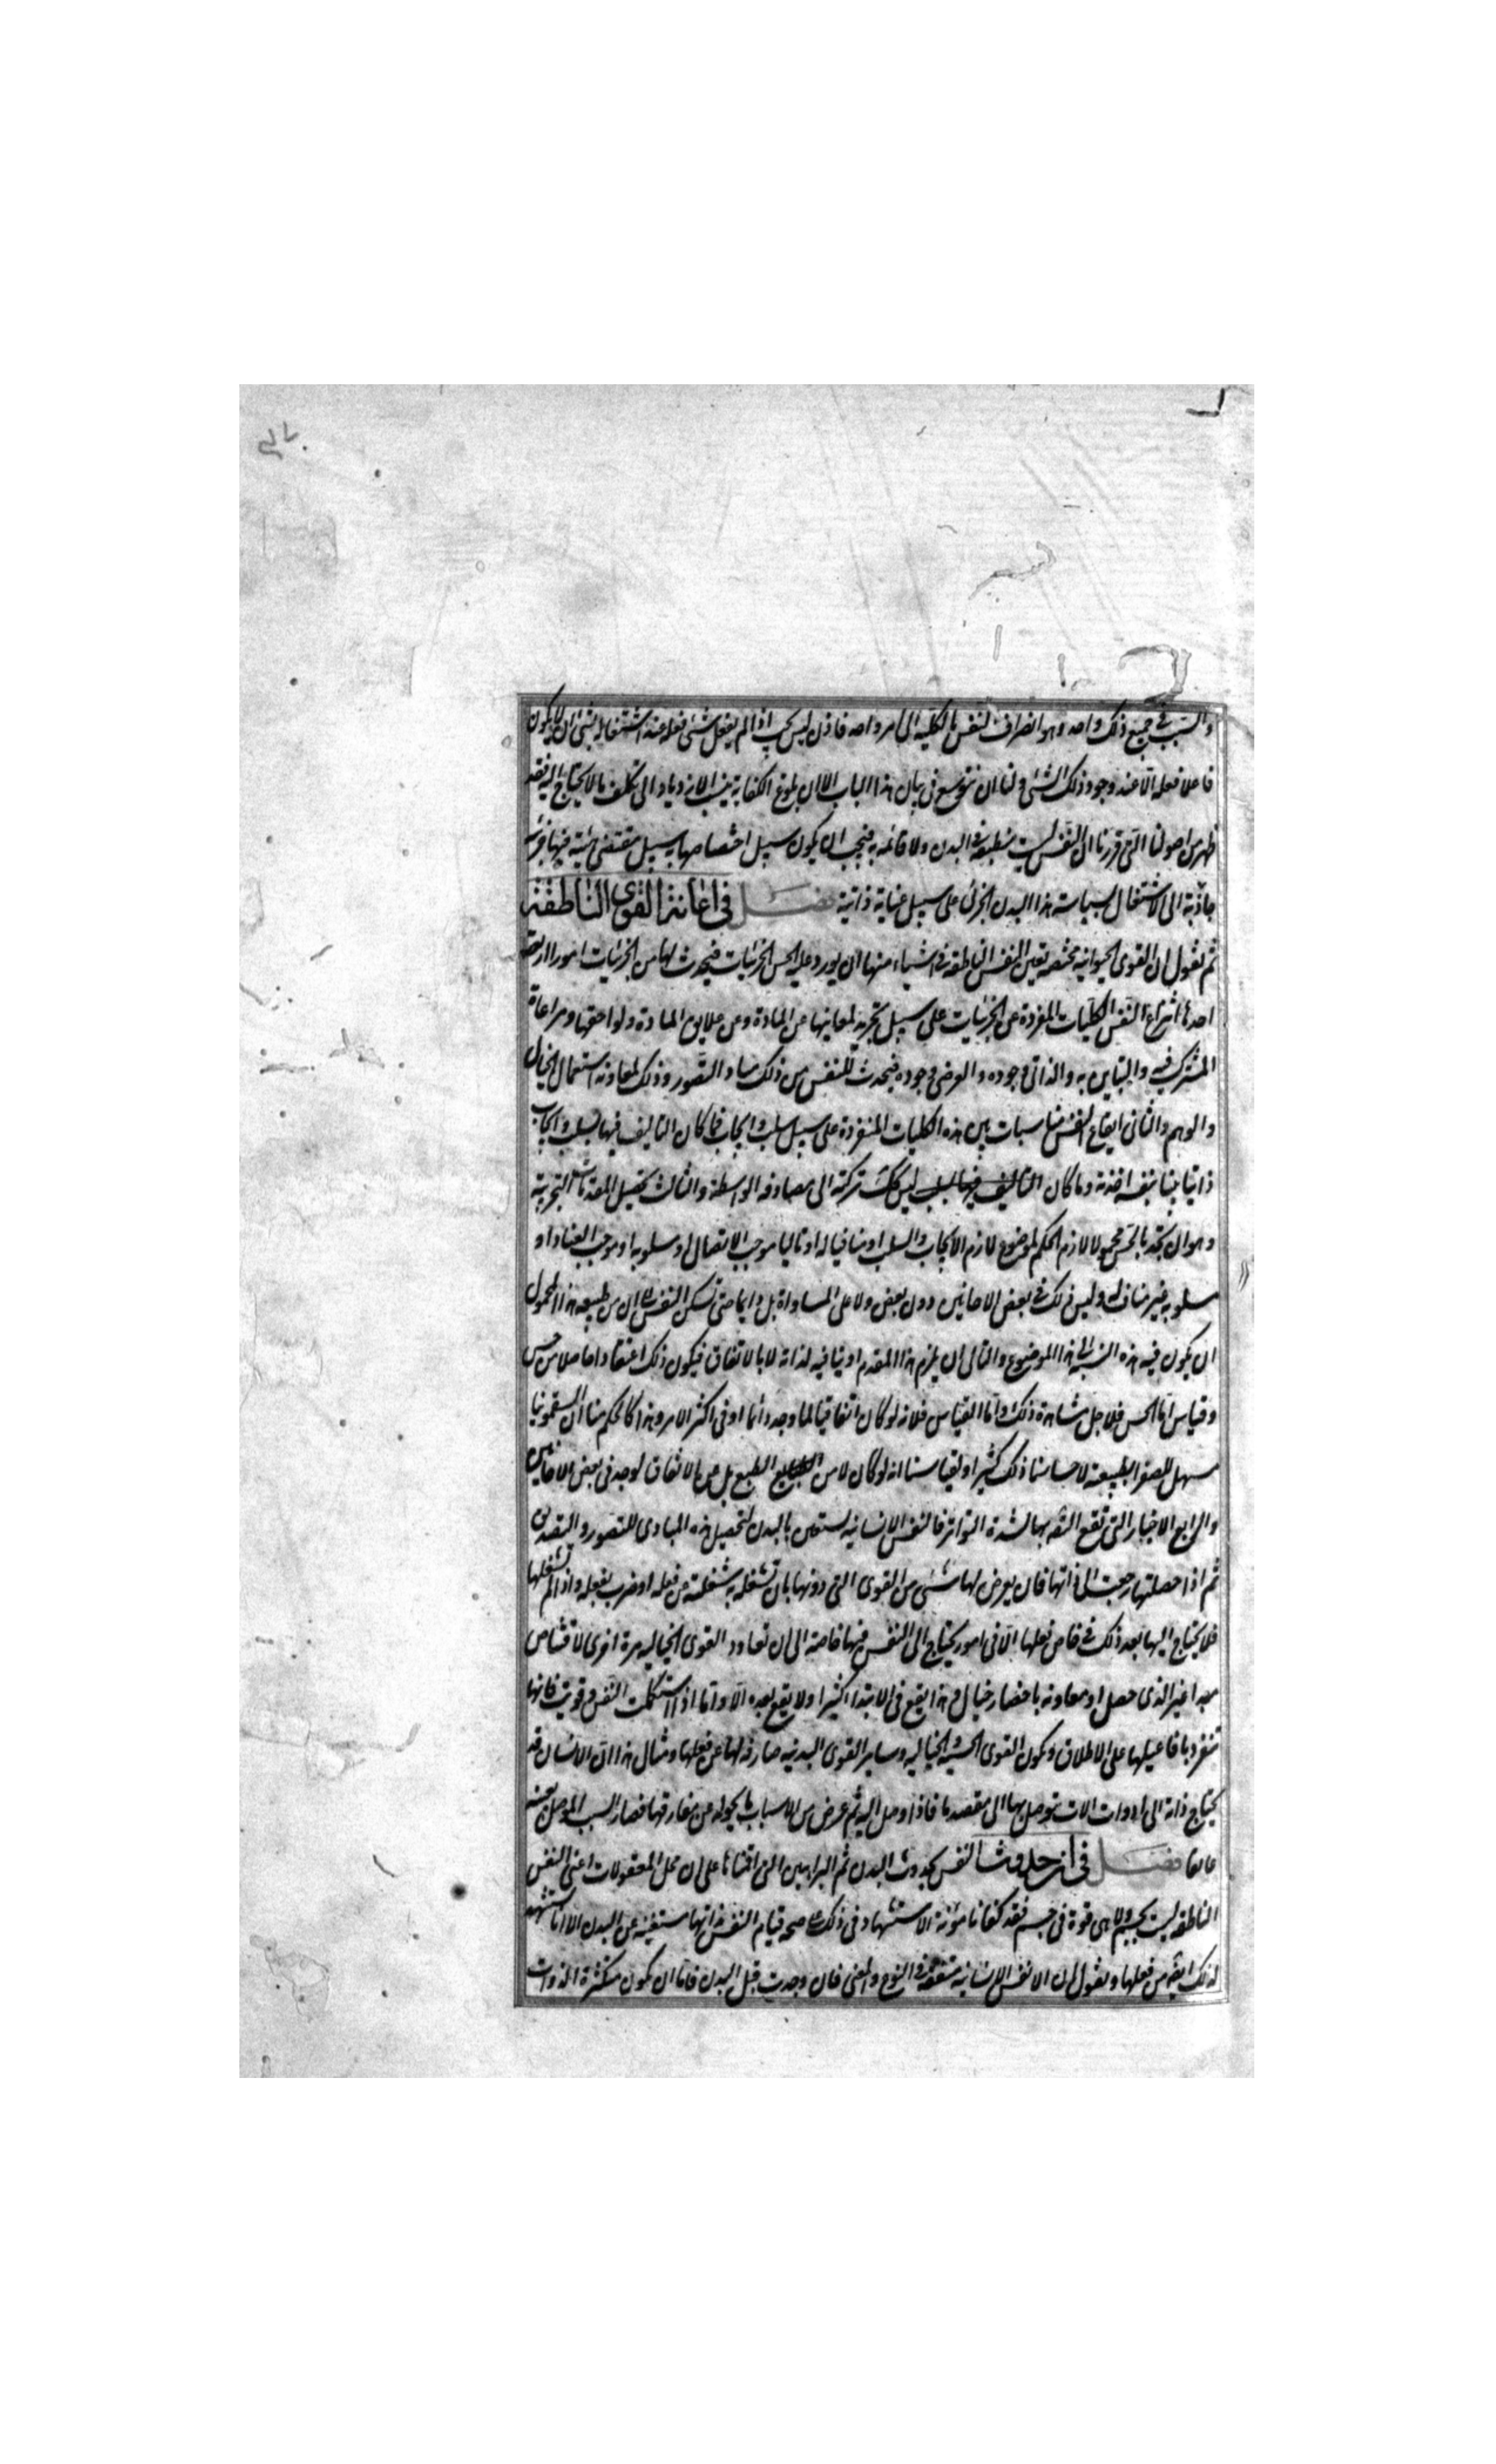 والسبب فى جميع ذلك واحد وهو انصراف النفس بالكليه الى امر واحد فاذن ليس يجب اذا لم يفعل شئ فعله عند اشتغاله بشئ ان لا يكون
فاعلا فعله الا عند وجود ذلك الشئ ولنا ان نتوسع فى بيان هذا الباب الا ان بلوغ الكفاية ينسب الازدياد الى تكلف ما لا يحتاج اليه فقد
ظهر من اصولنا التى قررنا ان النفس ليست منطبعة فى البدن ولا قائمه به فيجب ان يكون سبيل اختصاصها به سبيل مقتضى هيئة فيها جزئيه
جاذبة الى الاشتغال بسياسة هذا البدن الجزئى على سبيل عناية ذاتية فصل فى اعانة القوى الناطقة
ثم نقول ان القوى الحيوانيه مختصه تعين النفس الناطقه فى اشياء منها ان يورد عليه الحس الجزئيات فيحدث لها من الجزئيات امورا اربعة
احدها انتزاع النفس الكليات المفردة عن الجزئيات على سبيل تجريد لمعانيها عن المادة وعن علايق المادة ولواحقها ومراعاة
المشترك فيه والمتباين به والذاتى وجوده والعرضى وجوده فيحدث للنفس من ذلك مبادى التصور وذلك لمعاونة استعمال الخيال
والوهم والثانى ايقاع النفس مناسبات بين هذه الكليات المنفردة على سبيل سلب وايجاب فما كان التاليف فيها بسلب وايجاب
ذاتيا بينا بنفسه اخذته وما كان ليس كذلك تركته الى مصادفة الواسطة والثالث تحصيل المقدمات التجربية
وهو ان تجد بالحس محمولا لازم الحكم لموضوع لازم الايجاب والسلب او منافيا له او تاليا موجب الاتصال او مسلوبه او موجب العناد او
مسلوبه غير مناف له وليس ذلك فى بعض الاحايين دون بعض ولا على المساواة بل دايما حتى تسكن النفس على ان من طبيعة هذا المحمول
ان يكون فيه هذه النسبة الى هذا الموضوع والتالى ان يلزم هذا المقدم او ينافيه لذاته لا بالاتفاق فيكون ذلك اعتقادا حاصلا من حس
وقياس اما الحس فلاجل مشاهدة ذلك واما القياس فلانه لو كان اتفاقيا لما وجد دائما او فى اكثر الامر وهذا كالحكم منا ان السقمونيا
مسهل للصفرا بطبيعته لاحساسنا ذلك كثيرا ولقياسنا انه لو كان لا من الطبع بل من الاتفاق لوجد فى بعض الاحايين
والرابع الاخبار التى تقع الثقه بها لشدة التواتر فالنفس الانسانيه تستعين بالبدن لتحصيل هذه المبادى للتصور والتصديق
ثم اذا حصلتها رجعت الى ذاتها فان يعرض لها شئ من القوى التى دونها بان تشغله به شغلته عن فعله او ضرب بفعله واذا لم تشغلها
فلا يحتاج اليها بعد ذلك فى خاص فعلها الا فى امور يحتاج الى النفس فيها خاصة الى ان تعاود القوى الخياليه مرة اخرى لاقتناص
مبدا غير الذى حصل او معاونة باحضار خيال وهذا يقع فى الابتدا كثيرا ولا يقع بعده الا واما اذا استكملت النفس وقويت فانها
تنفرد بافاعيلها على الاطلاق وتكون القوى الحسيه والخياليه وساير القوى البدنيه صارفة لها عن فعلها ومثال هذا ان الانسان قد
يحتاج ذاته الى ادوات الات يتوصل بها الى مقصد ما فاذا وصل اليه ثم عرض من الاسباب ما يحوله عن مفارقتها فصار السبب الموصل بعينه
عائقا فصل فى انه حدوث النفس بحدوث البدن ثم البراهين التى اقمناها على ان محل المعقولات اعنى النفس
الناطقه ليست بجسم ولا هى قوة فى جسم فقد كفانا مؤنة الاستشهاد فى ذلك على صحه قيام النفس بذاتها مستغنيه عن البدن الا انا نستشهد
لذلك ايضا من فعلها ونقول ان الانفس الانسانيه متفقة فى النوع والمعنى فان وجدت قبل البدن فاما ان تكون متكثرة الذوات